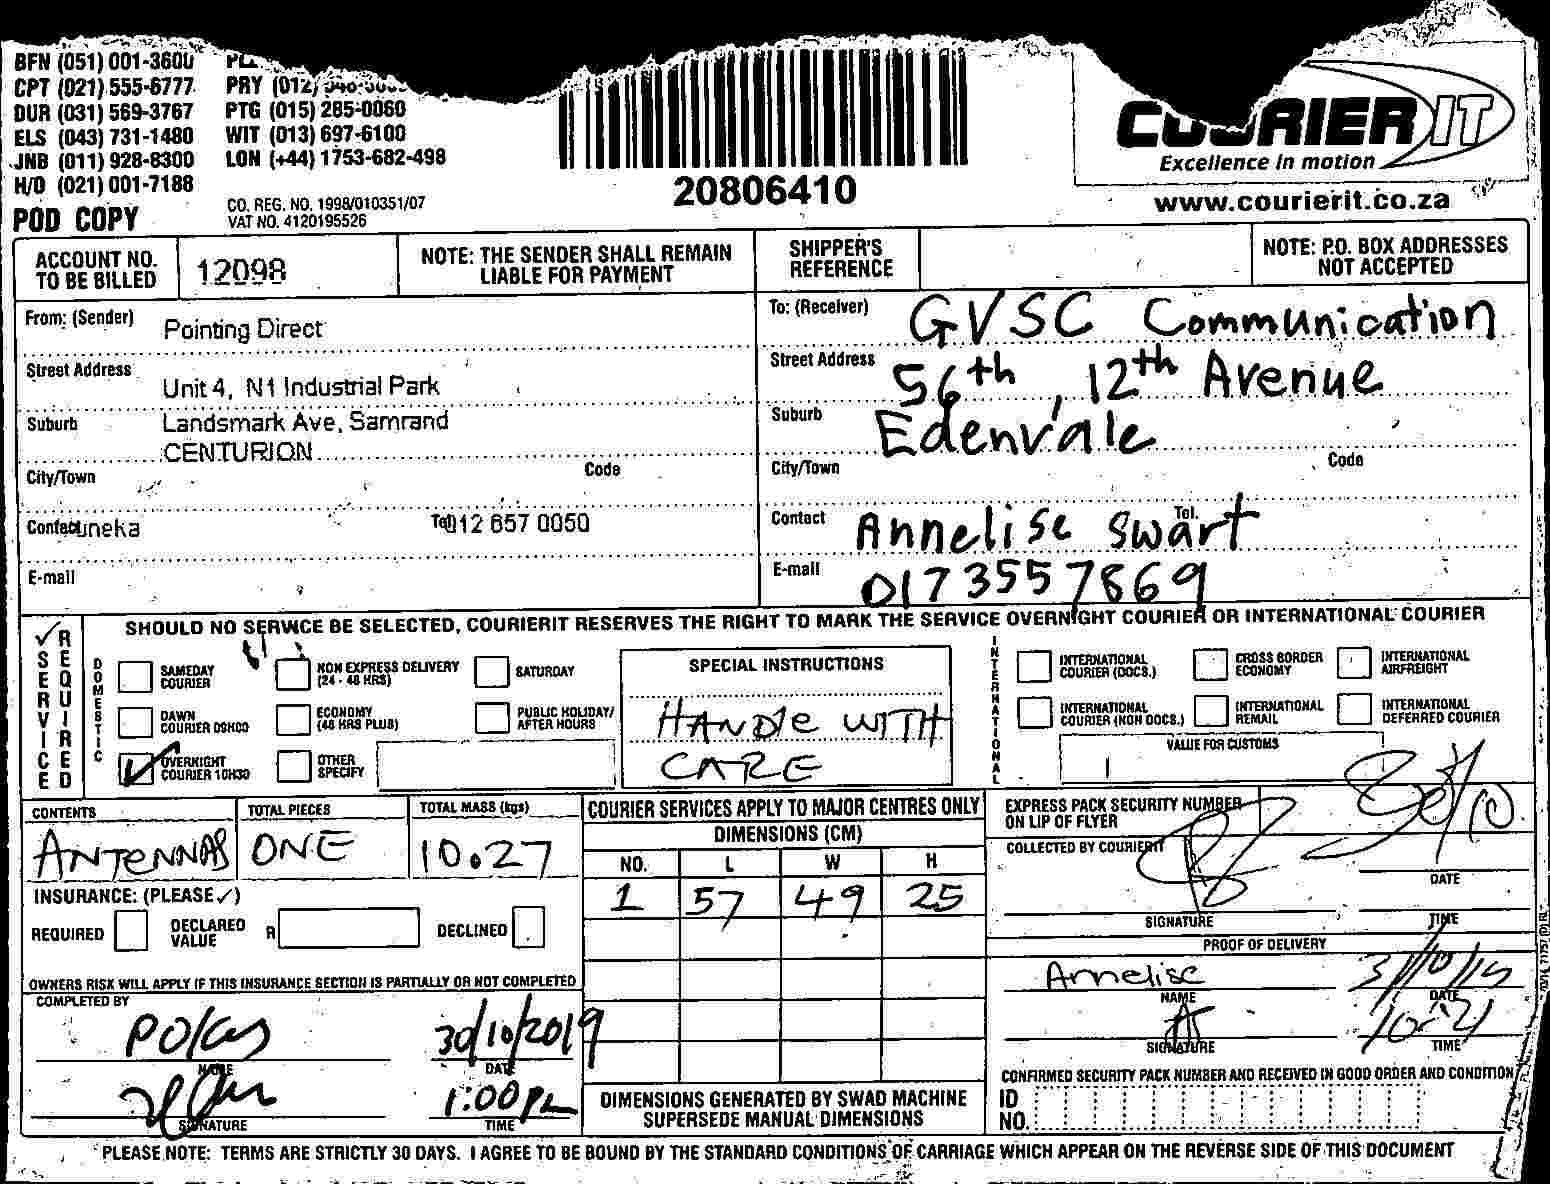 BFN (051) 001-3600
CPT (021) 555-6777 PRY (012)
DUR (031) 569-3767 PTG (015) 285-0060
ELS (043) 731-1480 WIT (013) 697-6100
JNB (011) 928-8300 LON (+44) 1753-682-498
H/O (021) 001-7188
CO. REG. NO. 1998/010351/07
POD COPY VAT NO. 4120195526
20806410
COURIER IT
Excellence in motion
www.courierit.co.za
ACCOUNT NO.
TO BE BILLED
12098
NOTE: THE SENDER SHALL REMAIN
LIABLE FOR PAYMENT
SHIPPER'S
REFERENCE
NOTE: P.O. BOX ADDRESSES
NOT ACCEPTED
From: (Sender) Pointing Direct
Street Address
Unit 4, N1 Industrial Park
Suburb Landsmark Ave, Samrand
CENTURION
City/Town Code
Contact uneka Tel 012 657 0050
E-mail
To: (Receiver) GVSC Communication
Street Address 56th, 12th Avenue
Suburb Edenvale
City/Town Code
Contact Annelise Swart Tel.
E-mail 0173557869
SERVICE REQUIRED
SHOULD NO SERVICE BE SELECTED, COURIERIT RESERVES THE RIGHT TO MARK THE SERVICE OVERNIGHT COURIER OR INTERNATIONAL COURIER
DOMESTIC
SAMEDAY
COURIER
NON EXPRESS DELIVERY
(24 - 48 HRS)
SATURDAY
DAWN
COURIER 09H00
ECONOMY
(48 HRS PLUS)
PUBLIC HOLIDAY/
AFTER HOURS
OVERNIGHT
COURIER 10H30
OTHER
SPECIFY
SPECIAL INSTRUCTIONS
HANDLE WITH
CARE
INTERNATIONAL
INTERNATIONAL
COURIER (DOCS.)
CROSS BORDER
ECONOMY
INTERNATIONAL
AIRFREIGHT
INTERNATIONAL
COURIER (NON DOCS.)
INTERNATIONAL
REMAIL
INTERNATIONAL
DEFERRED COURIER
VALUE FOR CUSTOMS
CONTENTS
ANTENNAS
TOTAL PIECES
ONE
TOTAL MASS (kgs)
10.27
INSURANCE: (PLEASE ✓)
REQUIRED DECLARED
VALUE R DECLINED
OWNERS RISK WILL APPLY IF THIS INSURANCE SECTION IS PARTIALLY OR NOT COMPLETED
COMPLETED BY
30/10/2019
NAME DATE
1:00
SIGNATURE TIME
COURIER SERVICES APPLY TO MAJOR CENTRES ONLY
DIMENSIONS (CM)
NO. L W H
1 57 49 25
DIMENSIONS GENERATED BY SWAD MACHINE
SUPERSEDE MANUAL DIMENSIONS
EXPRESS PACK SECURITY NUMBER
ON LIP OF FLYER
COLLECTED BY COURIERIT
30/10
DATE
SIGNATURE TIME
PROOF OF DELIVERY
Annelise 31/10/19
NAME DATE
10:21
SIGNATURE TIME
CONFIRMED SECURITY PACK NUMBER AND RECEIVED IN GOOD ORDER AND CONDITION
ID
NO.
PLEASE NOTE: TERMS ARE STRICTLY 30 DAYS. I AGREE TO BE BOUND BY THE STANDARD CONDITIONS OF CARRIAGE WHICH APPEAR ON THE REVERSE SIDE OF THIS DOCUMENT